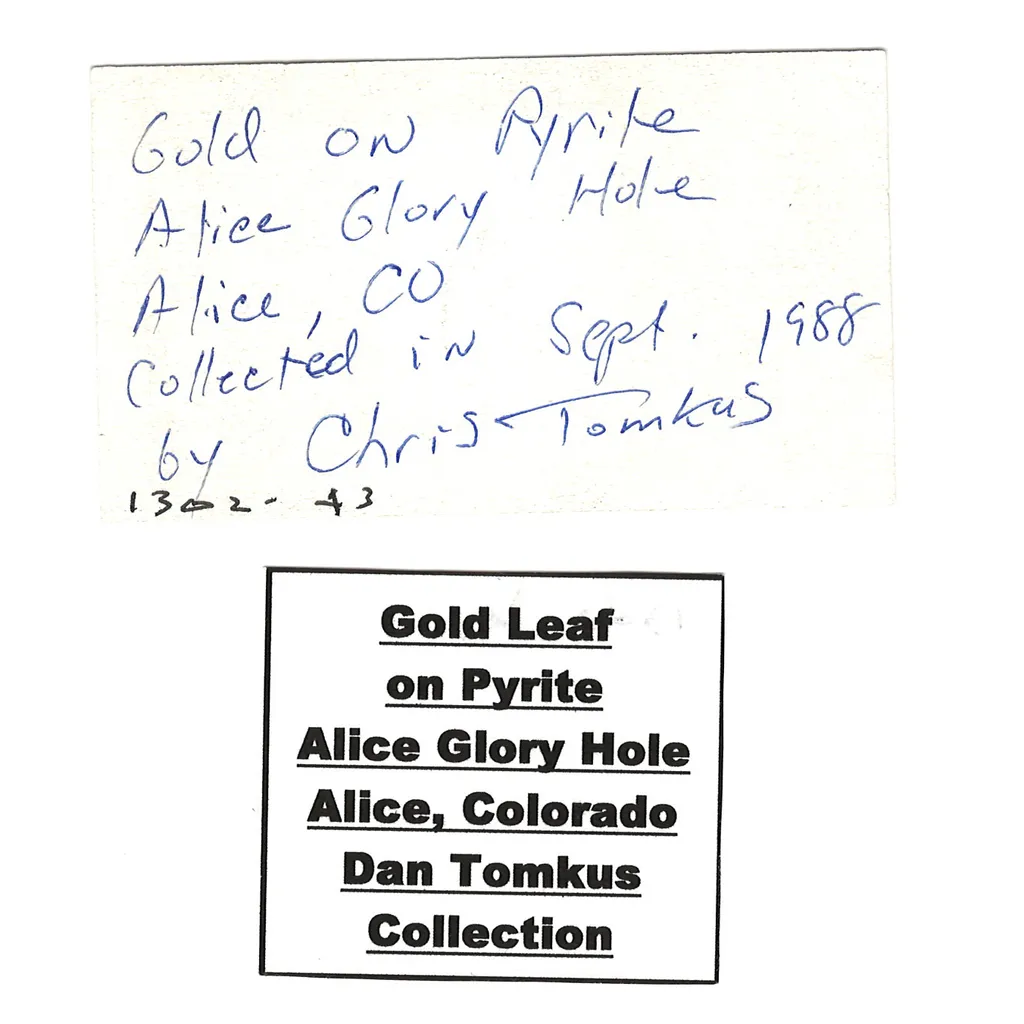 Gold on Pyrite
Alice Glory Hole
Alice, CO
Collected in Sept. 1988
by Chris Tomkus
1302-43
Gold Leaf
on Pyrite
Alice Glory Hole
Alice, Colorado
Dan Tomkus
Collection